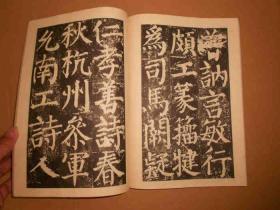 曾訥言敏行
頗工篆籀犍
爲司馬闕疑
仁孝善詩春
秋杭州參軍
允南工詩人